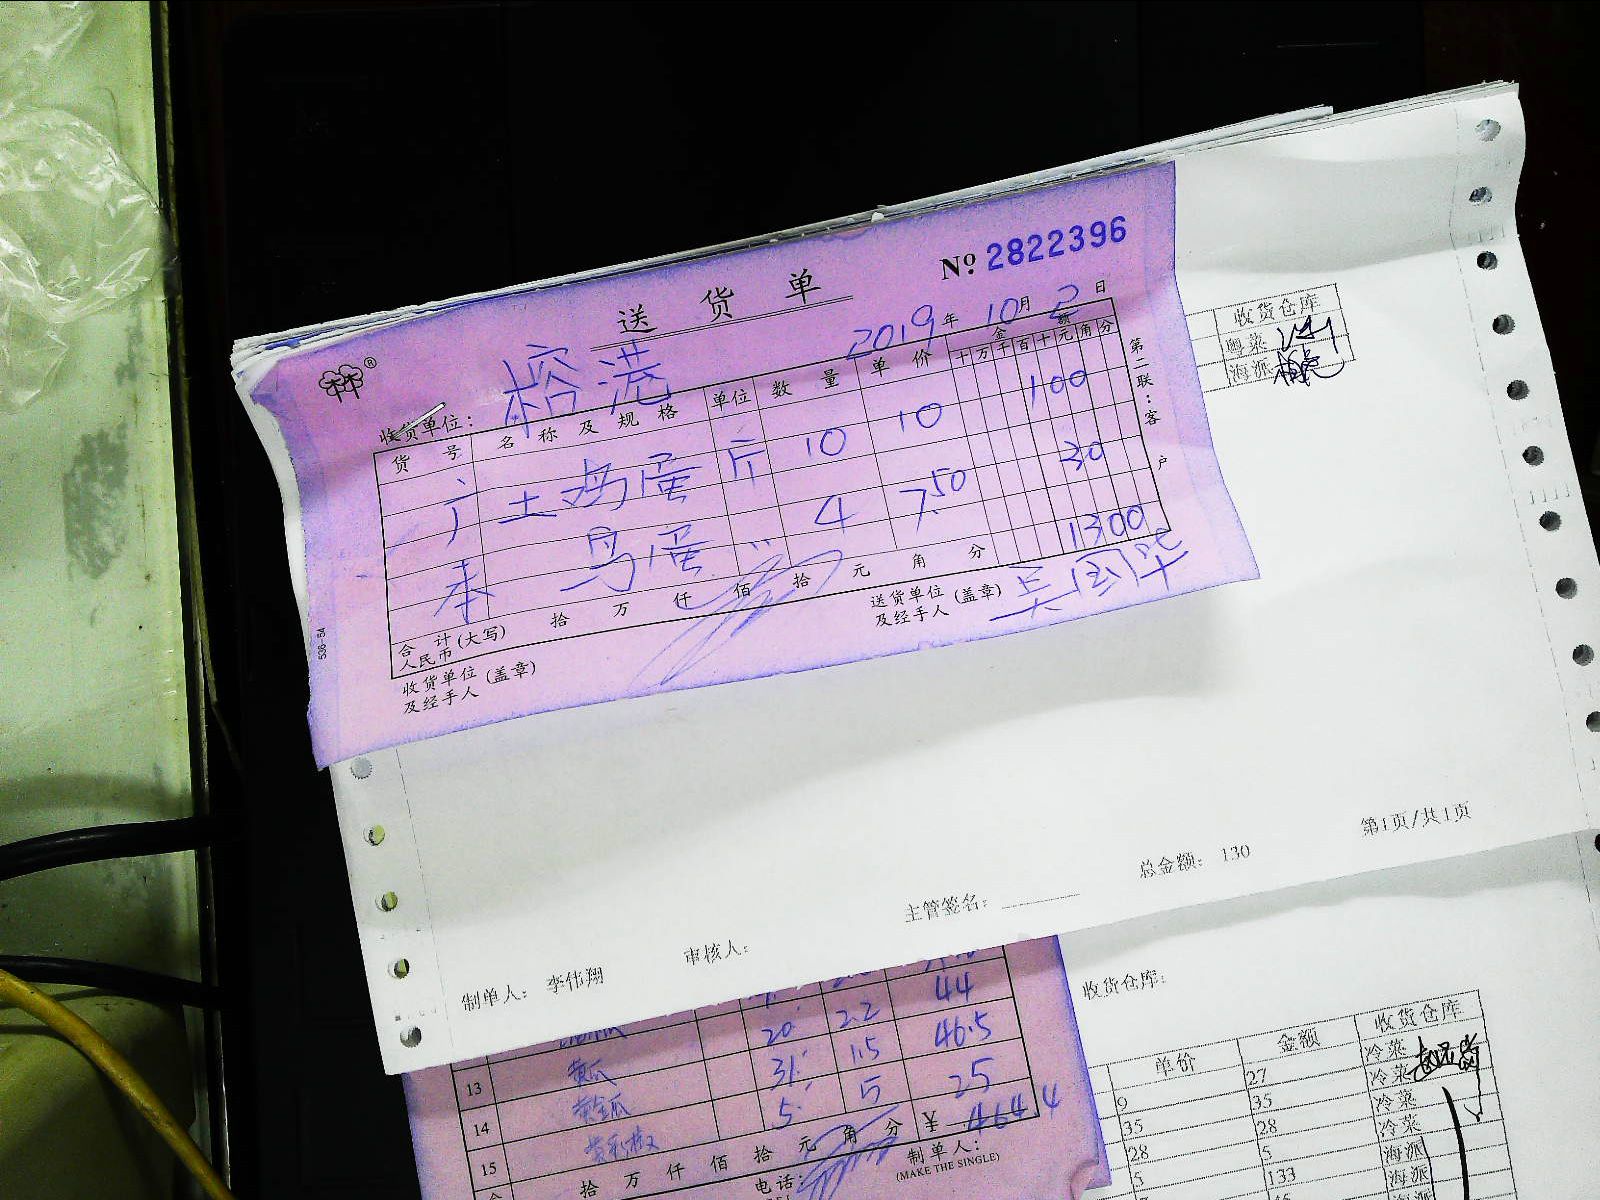 送货单
№ 2822396
2019年10月2日
收货单位: 榕港
货号 名称及规格 单位 数量 单价 金额
十万千百十元角分
广 土鸡蛋 斤 10 10 100
禾 鸟蛋 〃 4 7.50 30
1300
合计(大写)人民币 拾 万 仟 佰 拾 元 角 分
收货单位及经手人(盖章)
送货单位及经手人(盖章) 吴国华
第二联:客户
收货仓库
粤菜
海派
第1页/共1页
总金额: 130
主管签名:
审核人:
制单人: 李伟翔
44
20 2.2 46.5
13 黄瓜 31 1.5 25
14 黄金瓜 5 5
15
¥ 464.4
拾 万 仟 佰 拾 元 角 分
电话:
制单人:
(MAKE THE SINGLE)
收货仓库:
单价 金额 收货仓库
27 冷菜
9 35 冷菜
35 28 冷菜
28 5 冷菜
5 133 海派
海派